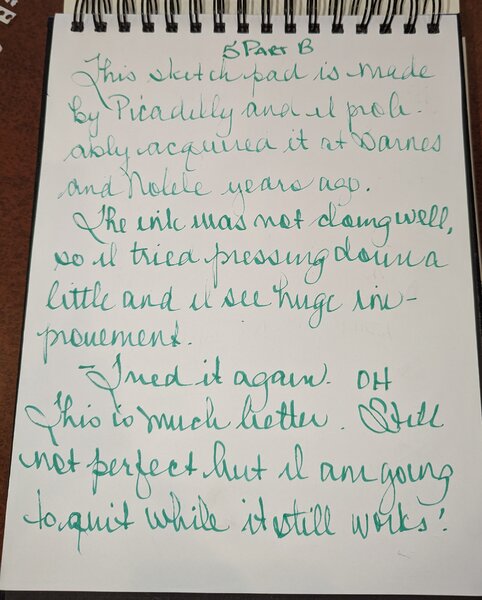 5 PART B
This sketch pad is made
by Picadilly and I prob-
ably acquired it at Barnes
and Noble years ago.
The ink was not doing well,
so I tried pressing down a
little and I see huge im-
provement.
- Tried it again. OH
This is much better. Still
not perfect but I am going
to quit while it still works!